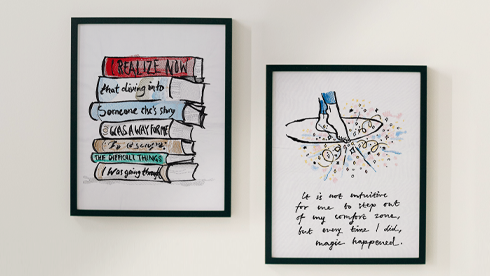 I REALIZE NOW
that diving into
Someone else's story
WAS A WAY FOR ME
THE DIFFICULT THINGS
I Was going through
It is not intuitive
for me to step out
of my comfort zone,
but every time I did,
magic happened.